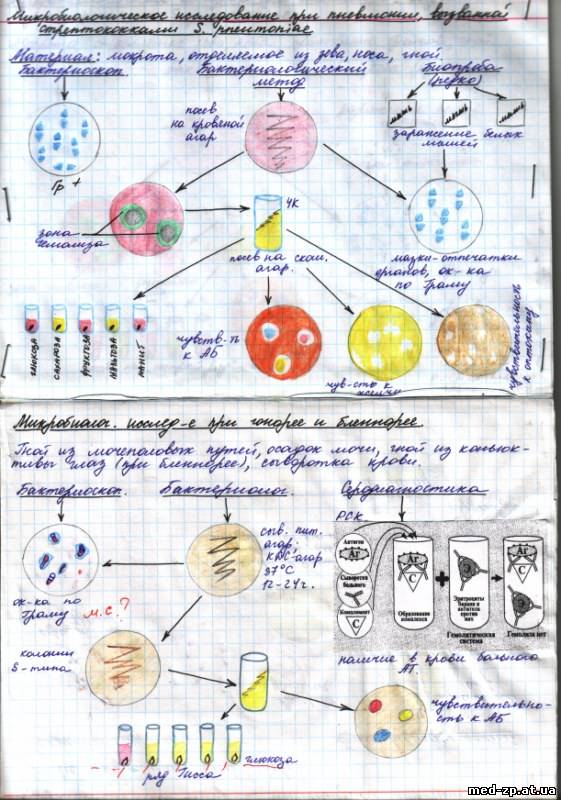 Микробиологическое исследование при пневмонии, вызванной
стрептококками S. pneumoniae
Материал: мокрота, отделяемое из зева, носа, гной.
Бактериоскоп.
Бактериологический
метод
Биопроба
(редко)
посев
на кровяной
агар
мышь
мышь
мышь
заражение белых
мышей
Гр +
зона
гемолиза
ЧК
посев на скош.
агар.
мазки-отпечатки
органов, ок-ка
по Граму
глюкоза
сахароза
фруктоза
мальтоза
маннит
чувств-ть
к АБ
чув-сть к желчи
чувствительность
к оптохину
Микробиолог. исслед-е при гонорее и бленнорее.
Гной из мочеполовых путей, осадок мочи, гной из конъюк-
тивы глаз (при бленнорее), сыворотка крови.
Бактериоскоп.
Бактериолог.
Серодиагностика
РСК
сыв. пит.
агар;
КДС-агар
37°C
12-24ч.
ок-ка по
Граму
М.С.?
Антиген
Аг
Сыворотка
больного
Комплемент
С
Аг
С
Образование
комплекса
Э
Эритроциты
барана и
антитела
против
них
Гемолитическая
система
Аг
С
Э
Гемолиза нет
колонии
S-типа
наличие в крови больного
АТ.
чувствительно-
сть к АБ
глюкоза
ряд Гисса
med-zp.at.ua